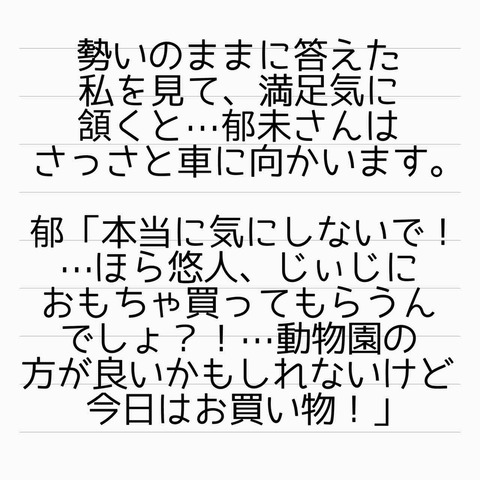 勢いのままに答えた
私を見て、満足気に
頷くと…郁未さんは
さっさと車に向かいます。
郁「本当に気にしないで！
…ほら悠人、じぃじに
おもちゃ買ってもらうん
でしょ？！…動物園の
方が良いかもしれないけど
今日はお買い物！」